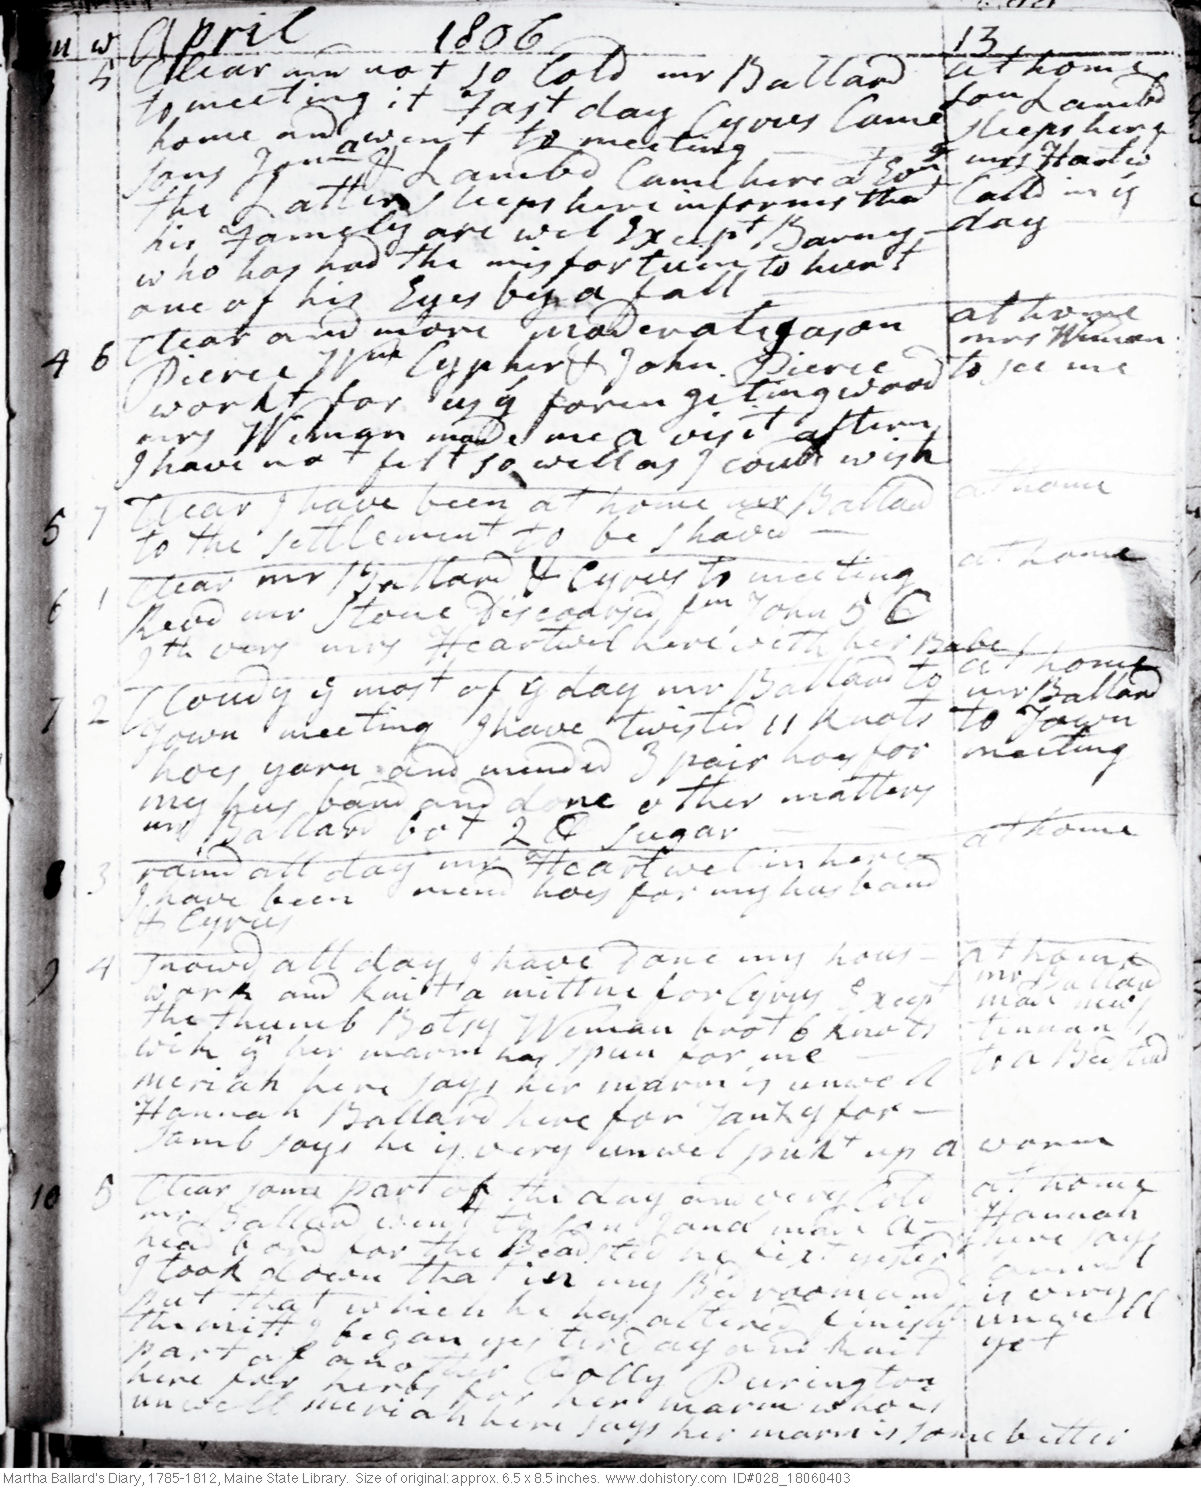 m w April 1806 13
3 5 Clear air not so Cold mr Ballard at home
to meeting it Fast day Cyrus Came son Lambd
home and went to meeting sleeps here
sons Jona & Lambd Came here at Evng mrs
the Latter sleeps here informs that Calld in ys
his Family are wel Except Barny day
who has had the misfortune to hurt
one of his Eyes by a fall
4 6 Clear and more moderate Jason at home
Pierce Wm Cypher & John Pierce mrs Wiman
workt for us ys foren giting wood to see me
mrs Wiman made me a visit aftern
I have not felt so well as I could wish
5 7 Clear I have been at home mr Ballard at home
to the settlement to be shaved
6 1 Clear mr Ballard & Cyrus to meeting at home
Revd mr Stone Discoarsd fm John 5 C
7th vers mrs Heartwel here with her Babe
7 2 Cloudy ys most of ys day mr Ballard to at home
Town meeting I have twisted 11 knots mr Ballard
hoes yarn and mended 3 pair hoes for to Town
my husband and done other matters meeting
mr Ballard bot 2 lb sugar
8 3 raind all day mr Heartwel in here at home
I have been mend hoes for my husband
& Cyrus
9 4 Snowd all day I have done my hous at home
work and knit a mittne for Cyrus Except mr Ballard
the thumb Betsy Wiman brot 6 knots
wik yn her marm has spun for me to a Bedstead
meriah here says her marm is unwell
Hannah Ballard here for Tanzy for
Lamb says he is very unwel pukt up a worm
10 5 Clear some part of the day and very Cold at home
mr Ballard went to son Jona made a Hannah
head board for the Beadsted he fixt yesterd here says
I took down that in my Bedroom and
put that which he has altered finisht is very
the mitt I began yesterday and knit unwell
part of another Dolly Purington yet
here for herbs for her marm who is
unwell meriah here says her marm is some better
Martha Ballard's Diary, 1785-1812, Maine State Library. Size of original: approx. 6.5 x 8.5 inches. www.dohistory.com ID#028_18060403